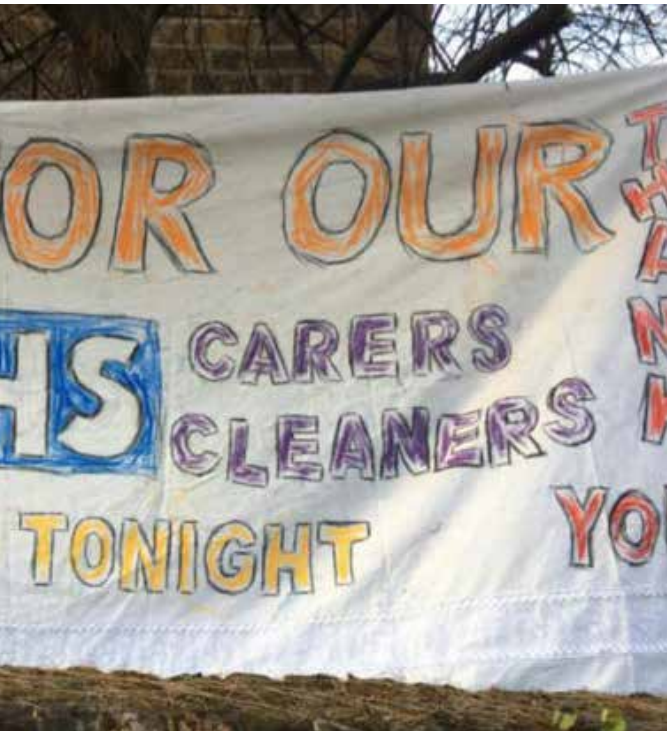 OR OUR
HS CARERS
CLEANERS
TONIGHT
THANK
YO